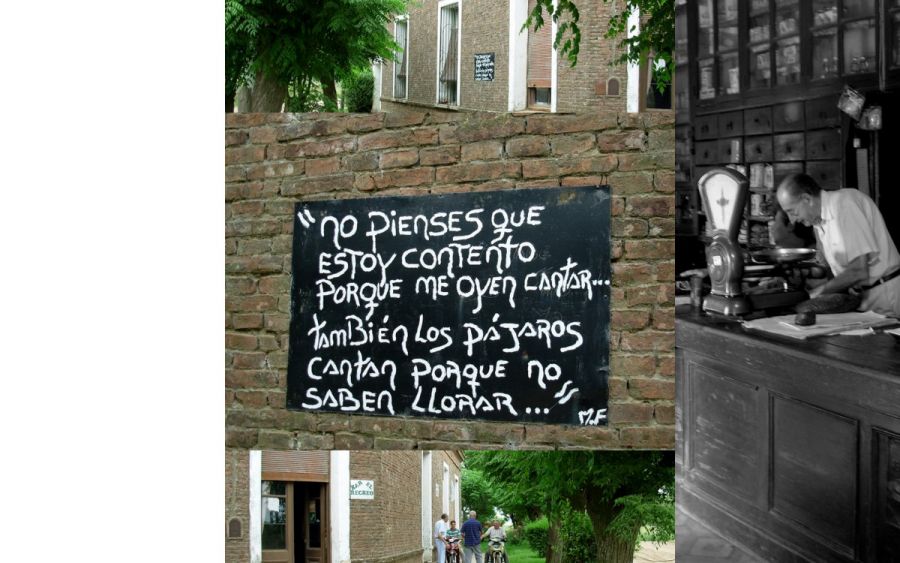 "NO PIENSES QUE
ESTOY CONTENTO
PORQUE ME OYEN CANTAR...
también LOS PÁJAROS
CANTAN PORQUE NO
SABEN LLORAR..."
M.F
BAR EL
RECREO